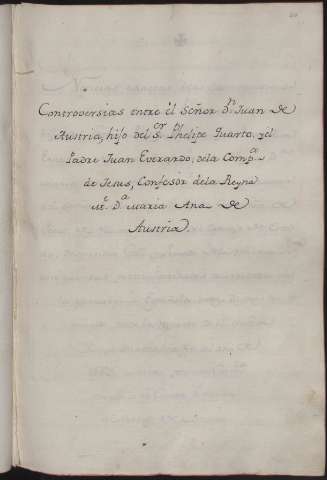 Controversias entre el Señor Dn Juan de
Austria, hijo del Sor Phelipe Quarto, y el
Padre Juan Everardo, dela Compa
de Jesus, Confesor dela Reyna
Da Maria Ana de
Austria.